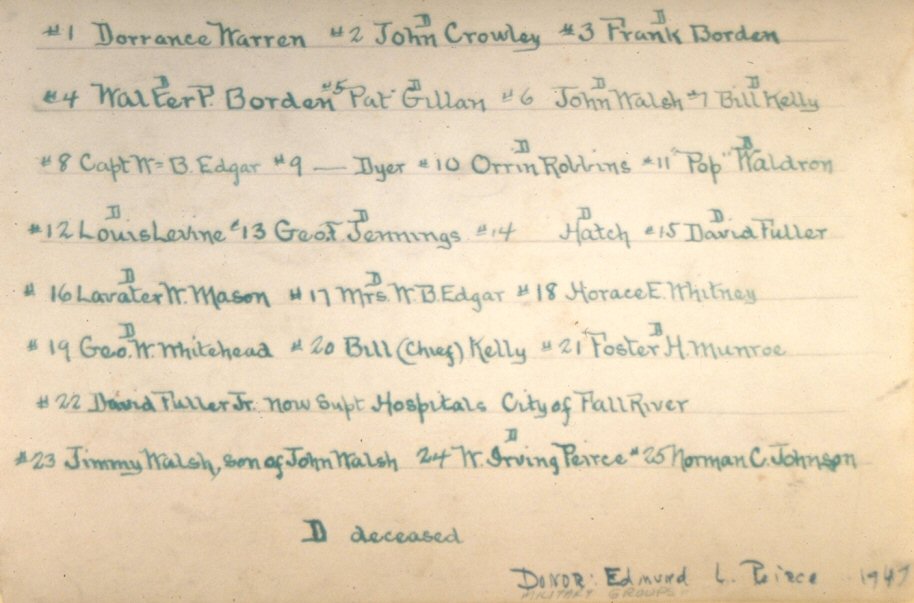 #1 Dorrance Warren #2 John Crowley #3 Frank Borden
D D
#4 Walter P. Borden #5 "Pat" Gillan #6 John Walsh #7 Bill Kelly
D D D D
#8 Capt Wm B. Edgar #9 — Dyer #10 Orrin Robbins #11 "Pop" Waldron
D D
#12 Louis Levine #13 Geo. F. Jennings #14 Hatch #15 David Fuller
D D D D
#16 Lavater W. Mason #17 Mrs. W. B. Edgar #18 Horace E. Whitney
D D
#19 Geo. W. Whitehead #20 Bill (Chief) Kelly #21 Foster H. Munroe
D D
#22 David Fuller Jr. now Supt Hospitals City of Fall River
#23 Jimmy Walsh, son of John Walsh 24 W. Irving Peirce #25 Norman C. Johnson
D
D deceased
DONOR: Edmund L. Peirce 1947
MILITARY GROUPS